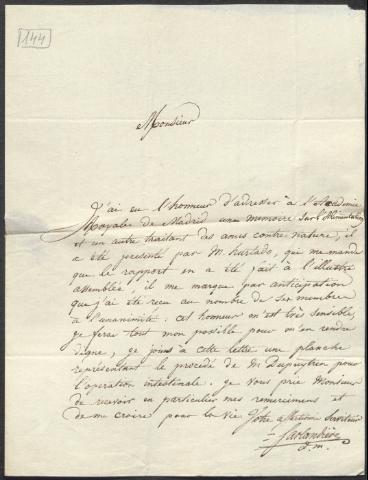 144
Monsieur
J'ai eu l'honneur d'adresser à l'Academie
Royale de Madrid une memoire sur l'Alimentation
et un autre traitant des anus contre nature, il
a été presenté par M. hurtado, qui me mande
que le rapport en a été fait à l'illustre
assemblée; il me marque par anticipation
que j'ai été recu au nombre de ses membres
à l'unanimité. cet honneur m'est très sensible,
je ferai tout mon possible pour m'en rendre
digne, je joins à cette lettre une planche
représentant le procédé de Mr Dupuytren pour
l'operation intestinale. je vous prie Monsieur
de recevoir en particulier mes remerciemens et
de me croire pour la vie Votre affectionné serviteur
Sarlandière
d.m.